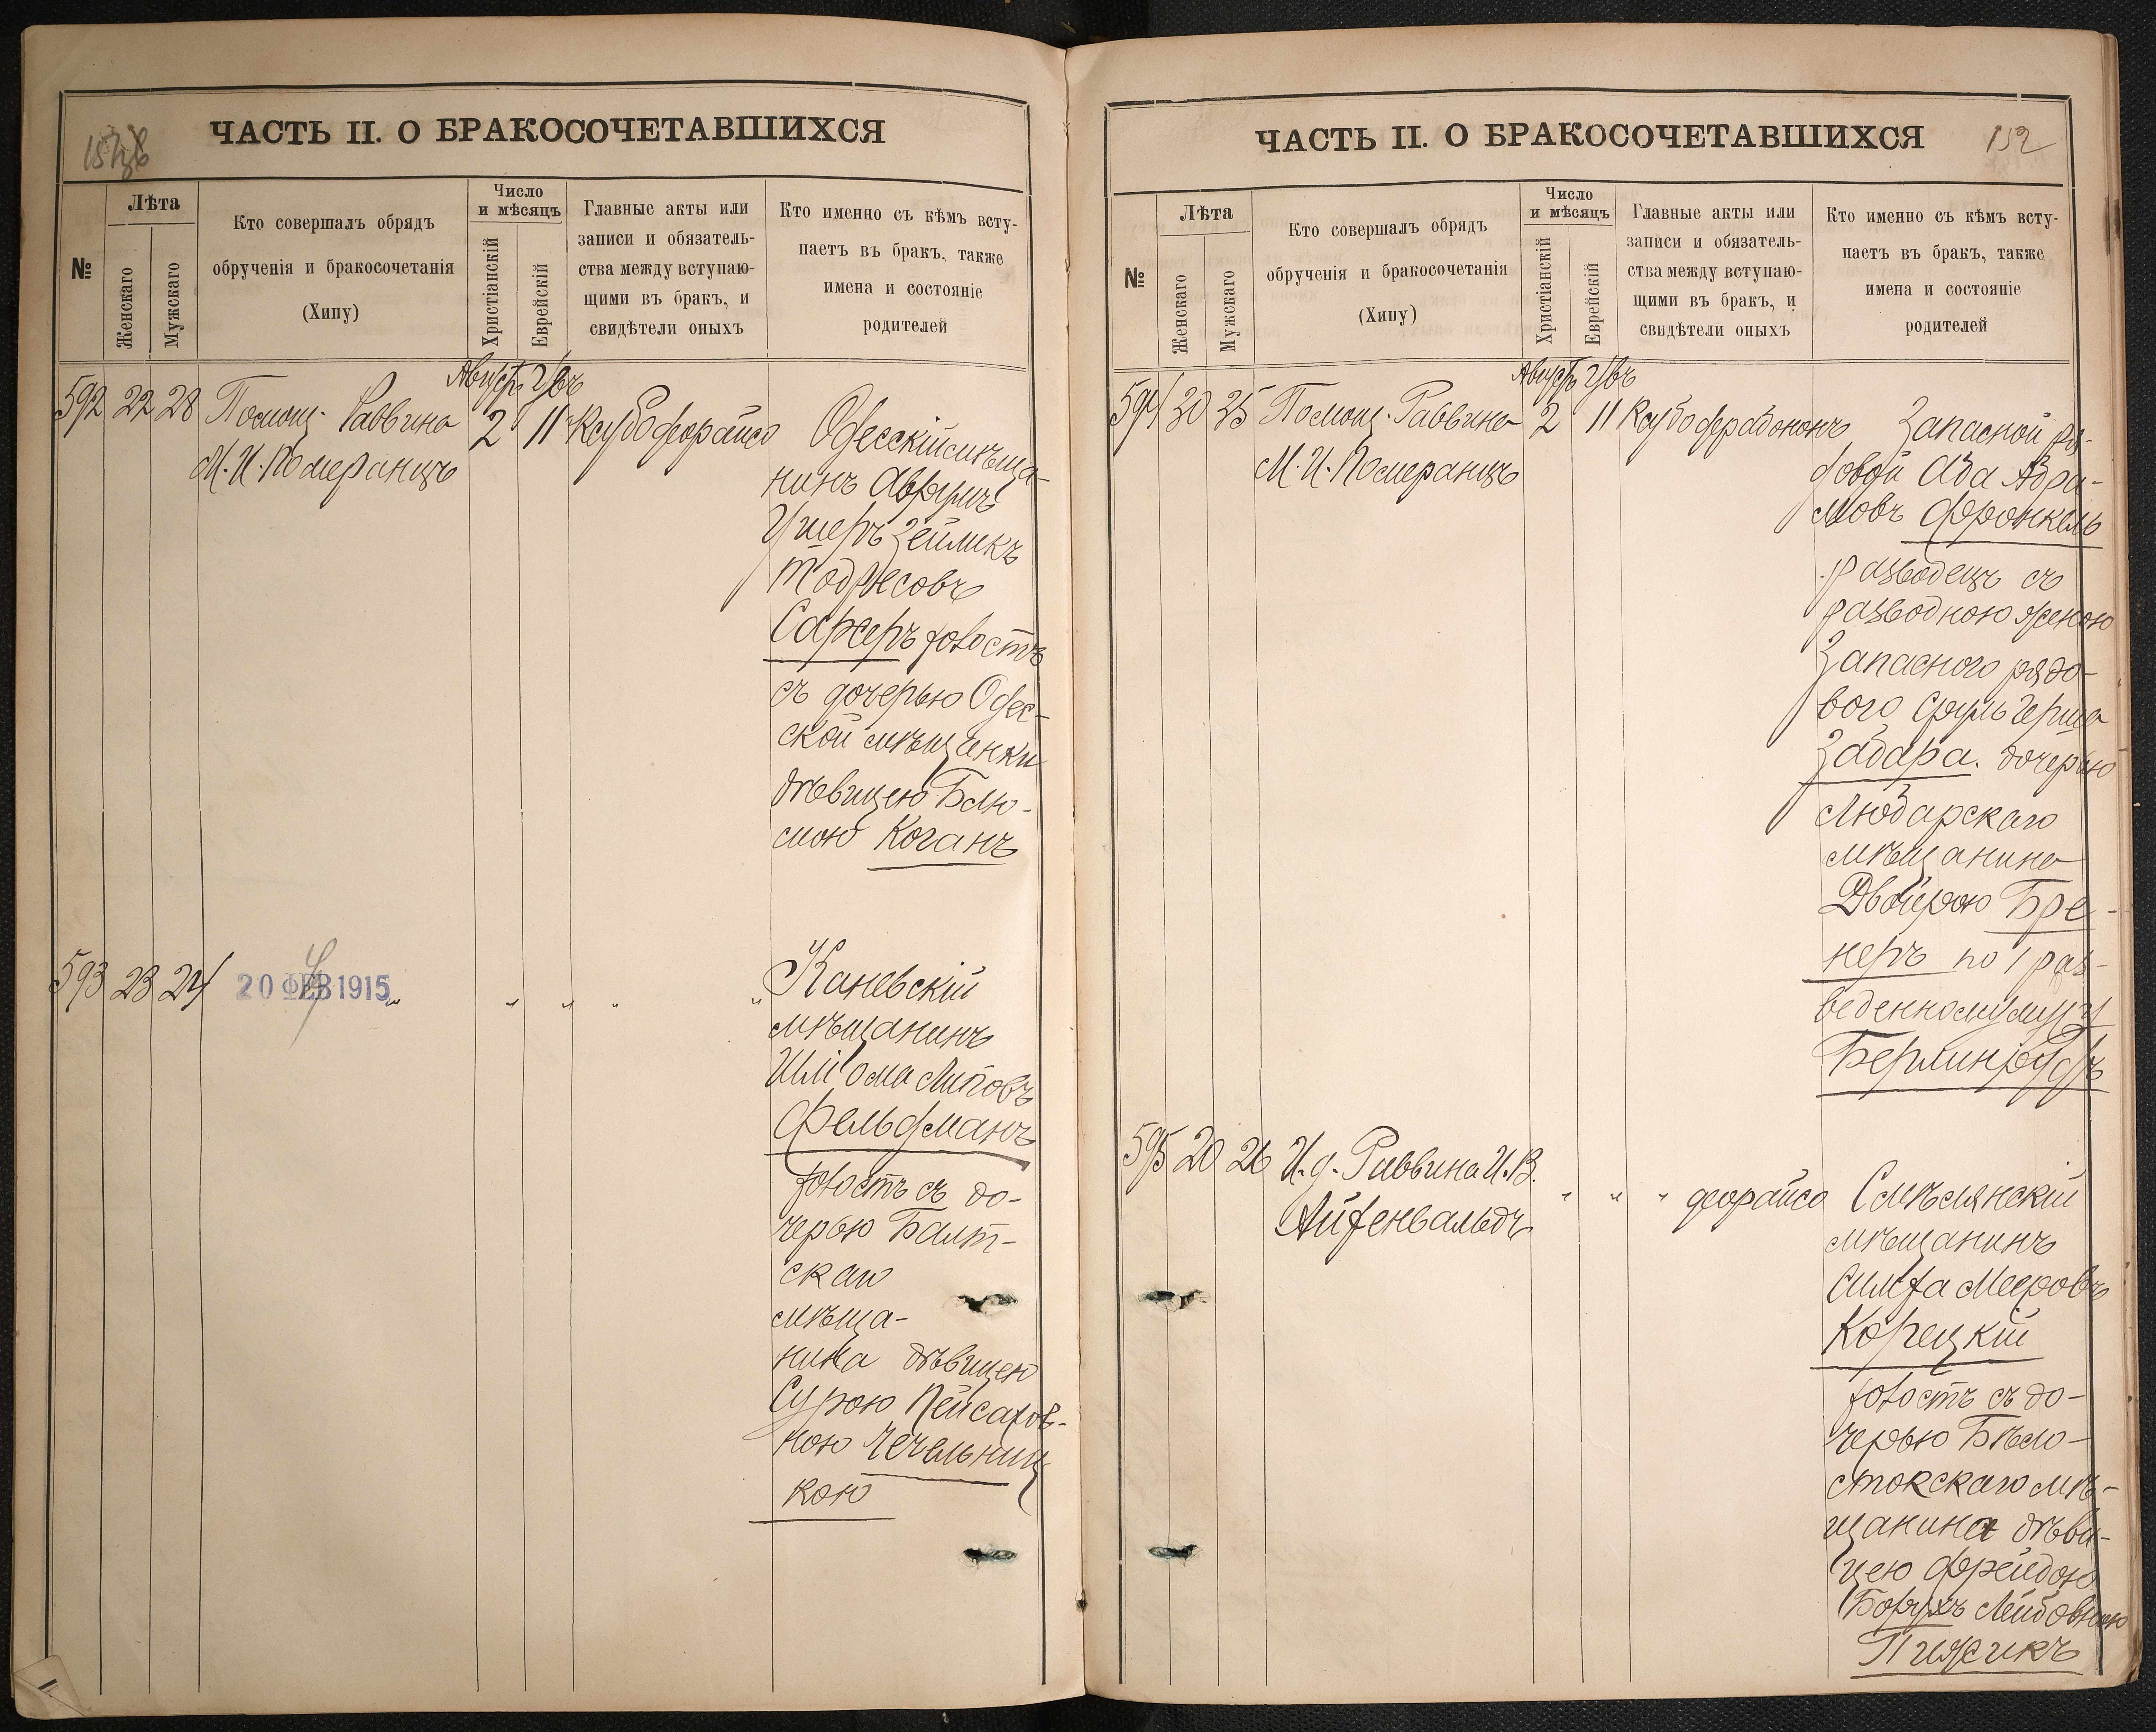 ЧАСТЬ II. О БРАКОСОЧЕТАВШИХСЯ
№
Лѣта
Женскаго
Мужскаго
Кто совершалъ обрядъ
обрученія и бракосочетанія
(Хипу)
Число
и мѣсяцъ
Христіанскій
Еврейскій
Главные акты или
записи и обязатель-
ства между вступаю-
щими въ бракъ, и
свидѣтели оныхъ
Кто именно съ кѣмъ всту-
паетъ въ бракъ, также
имена и состояніе
родителей
592 22 28 Помощ. Раввина
М. И. Померанцъ
2 11 Ксубо деорайсо
Одесскій мѣща-
нинъ
Ушеръ Зейликъ
Тодресовъ
Сарсеръ холостъ
съ дочерью Одес-
ской мѣщанки
дѣвицею Блю-
мою Коганъ
593 23 24 20 ФЕВ 1915 " " " " "
Каневскій
мѣщанинъ
Шліома Липовъ
Фельдманъ
холостъ съ до-
черью Балт-
скаго
мѣща-
нина дѣвицею
Сурою Пейсахов-
ною Чечельниц
кою
ЧАСТЬ II. О БРАКОСОЧЕТАВШИХСЯ
152
№
Лѣта
Женскаго
Мужскаго
Кто совершалъ обрядъ
обрученія и бракосочетанія
(Хипу)
Число
и мѣсяцъ
Христіанскій
Еврейскій
Главные акты или
записи и обязатель-
ства между вступаю-
щими въ бракъ, и
свидѣтели оныхъ
Кто именно съ кѣмъ всту-
паетъ въ бракъ, также
имена и состояніе
родителей
594 30 35 Помощ. Раввина
М. И. Померанцъ
2 11 Ксубо драбононъ
Запасной ря-
довой Аба Абра-
мовъ Френкель
разводецъ съ
разводною женою
Запасного рядо-
вого Сруль Герша
Забара. дочерью
Любарскаго
мѣщанина
Двойрою Бре-
неръ по 1 раз-
веденному мужу
595 20 26 И. д. Раввина И. В.
Айзенвальдъ
" " " деорайсо
Смѣлянскій
мѣщанинъ
Симха Мееровъ
Корецкій
холостъ съ до-
черью Бѣло-
стокскаго мѣ-
щанина дѣви-
цею Фрейдою
Борухъ Лейбовною
Пижикъ